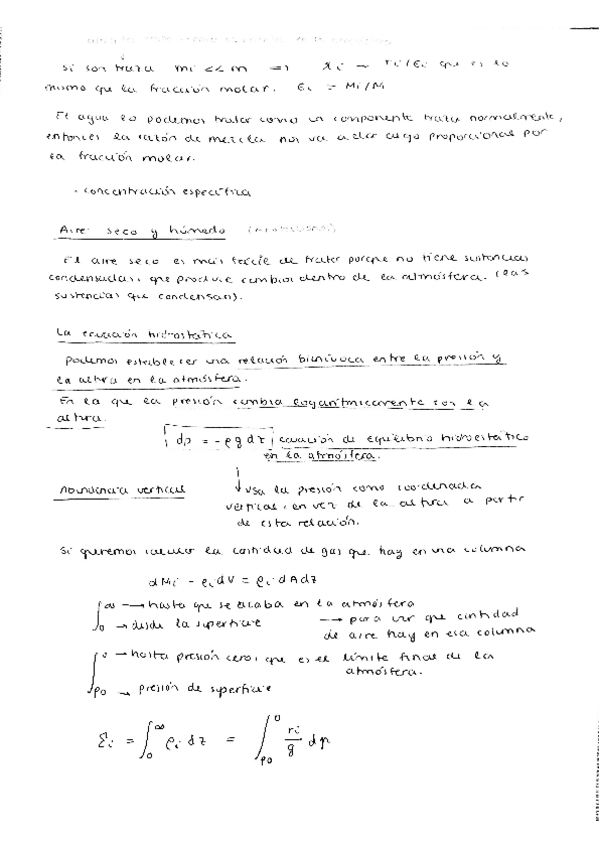 si son traza mi << m => xi ~ ri/εi que es lo
mismo que la fracción molar. εi = Mi/M
El agua lo podemos tratar como un componente traza normalmente,
entonces la razón de mezcla nos va a dar algo proporcional por
la fracción molar.
· concentración específica
Aire seco y húmedo
El aire seco es más fácil de tratar porque no tiene sustancias
condensadas, que produce cambios dentro de la atmósfera. (las
sustancias que condensan).
La ecuación hidrostática
Podemos establecer una relación biunívoca entre la presión y
la altura en la atmósfera.
En la que la presión cambia logarítmicamente con la
altura.
dp = -ρgdz ecuación de equilibrio hidrostático
en la atmósfera.
Abundancia vertical ↓ usa la presión como coordenada
vertical, en vez de la altura a partir
de esta relación.
Si queremos calcular la cantidad de gas que hay en una columna
dMi = ρi dV = ρi dAdz
∫ ∞ → hasta que se acaba en la atmósfera
0 → desde la superficie → para ver que cantidad
de aire hay en esa columna
∫ 0 → hasta presión cero, que es el límite final de la
atmósfera.
p0 → presión de superficie
Σi = ∫₀^∞ ρi dz = ∫_p0^0 ri/g dp